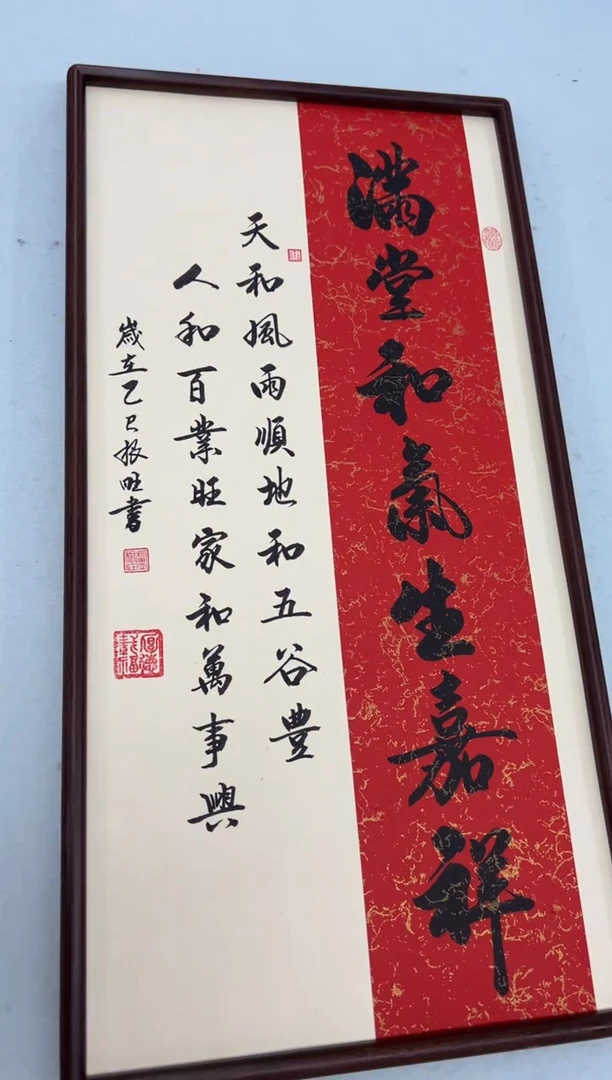 滿堂和氣生嘉祥
天和風雨順地和五谷豐
人和百業旺家和萬事興
歲在乙巳振旺書
厚德載福